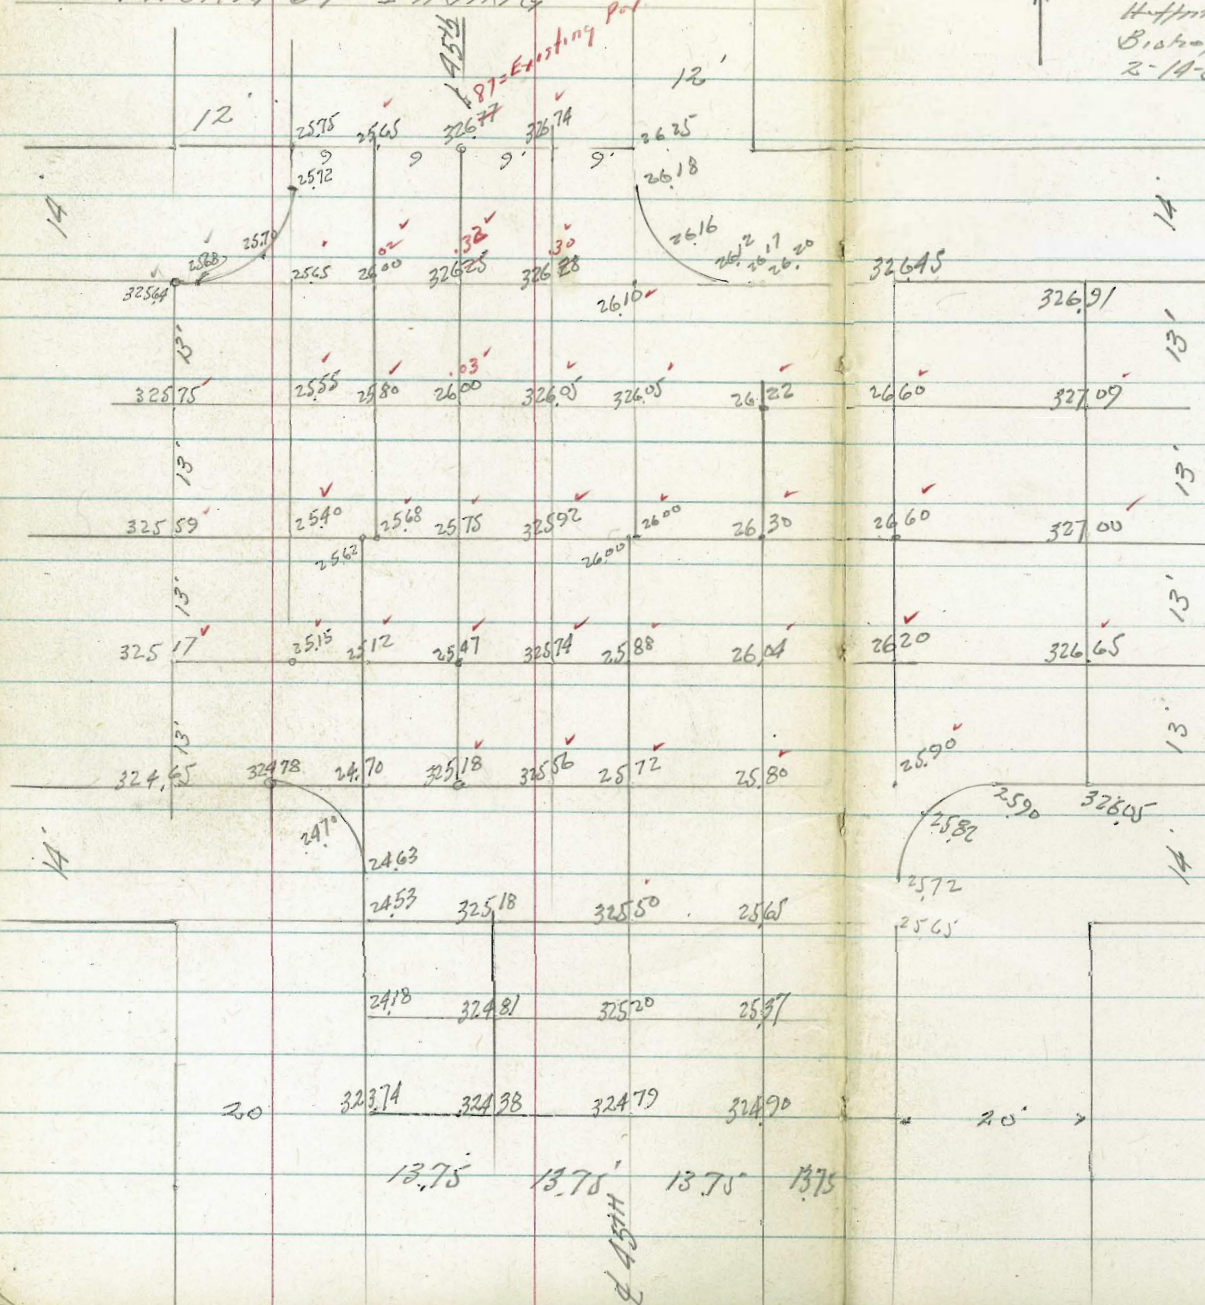 ℄ 45th
87=Existing
Huffm
2-14-
12'
12'
25.75 25.65 326.77 326.74 26.25
9 9 9' 9'
25.72 26.18
14' 14'
25.70 26.16
25.68 26.12 26.17 26.20
.02 .32 .30
325.64 25.65 26.00 326.25 326.28 26.10 326.45 326.91
13' 13'
.03
325.75 25.55 25.80 26.00 326.05 326.05 26.22 26.60 327.09
13' 13'
325.59 25.40 25.68 25.75 325.92 26.00 26.30 26.60 327.00
25.62 26.00
13' 13'
325.17 25.15 25.12 25.47 325.74 25.88 26.04 26.20 326.65
13' 13'
25.90
324.65 324.78 24.70 325.18 325.56 25.72 25.80
25.90 326.05
24.70 25.82
14' 14'
24.63 25.72
24.53 325.18 325.50 25.65 25.65
24.18 324.81 325.20 25.37
20 323.74 324.38 324.79 324.90 20'
13.75' 13.75' 13.75' 13.75
℄ 45TH